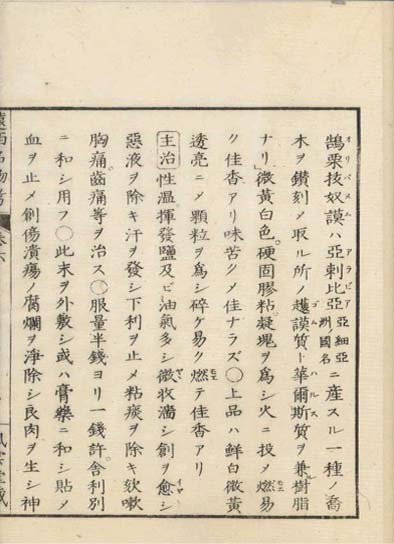 鶻栗抜奴謨ハ亞剌比亞亞細亞洲ノ國名ニ産スル一種ノ喬
木ヲ鑚刻メ取ル所ノ護謨質ト華爾斯質ヲ兼ル樹脂
ナリ微黄白色。硬固膠粘凝塊ヲ爲シ火ニ投メ燃易
ク佳香アリ味苦クメ佳ナラズ〇上品ハ鮮白微黄
透亮ニメ顆粒ヲ爲シ碎ケ易ク燃テ佳香アリ
主治性温揮發鹽及ビ油氣多シ微收濇シ創ヲ愈シ
惡液ヲ除キ汗ヲ發シ下利ヲ止メ粘痰ヲ除キ欬嗽
胸痛。齒痛等ヲ治ス〇服量半錢ヨリ一錢許舎利別
ニ和シ用フ〇此末ヲ外敷シ或ハ膏藥ニ和シ貼メ
血ヲ止メ創傷潰瘍ノ腐爛ヲ淨除シ良肉ヲ生シ神